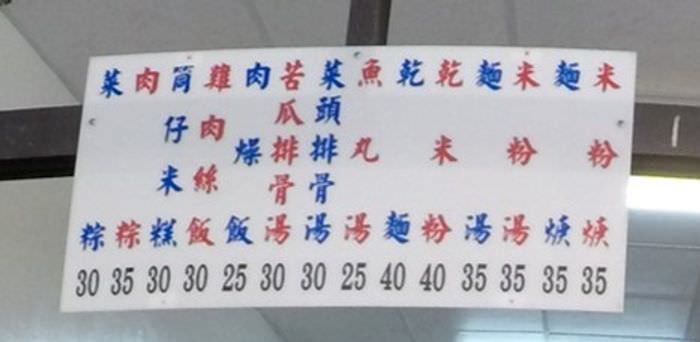 菜粽 30
肉粽 35
筒仔米糕 30
雞肉絲飯 30
肉燥飯 25
苦瓜排骨湯 30
菜頭排骨湯 30
魚丸湯 25
乾麵 40
乾米粉 40
麵湯 35
米粉湯 35
麵焿 35
米粉焿 35